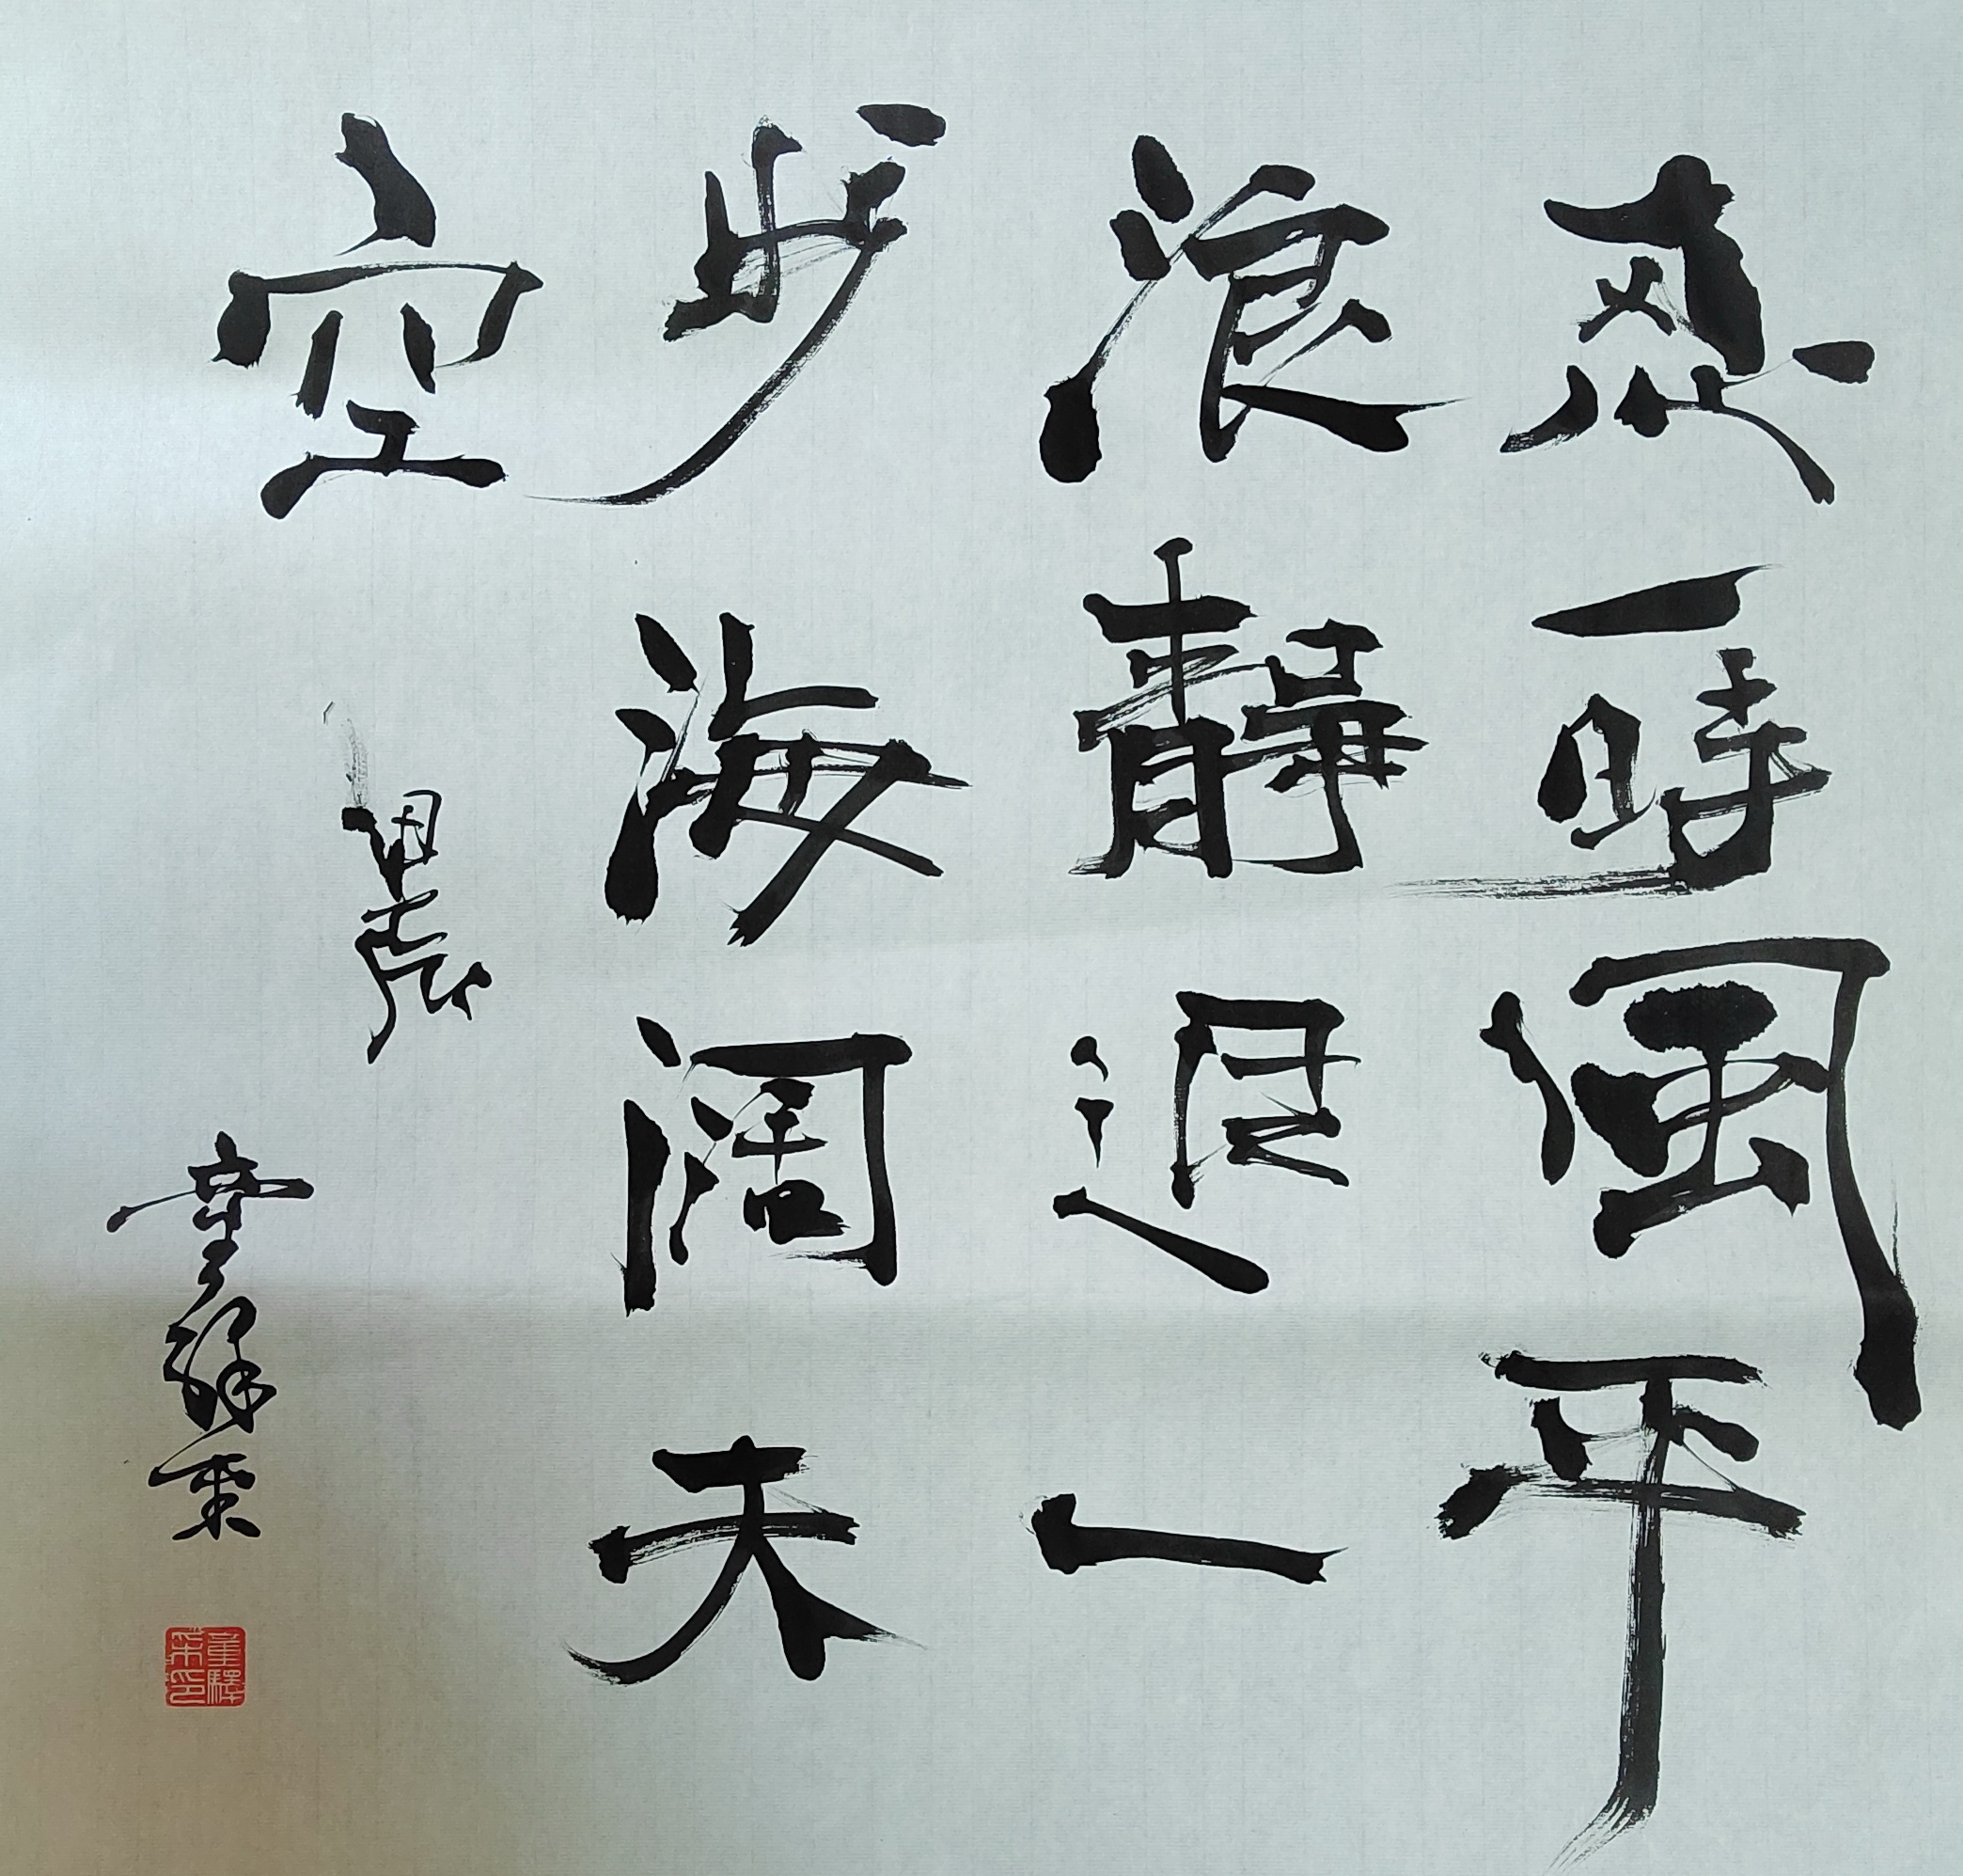 忍一時風平
浪靜退一
步海阔天
空
甲辰
童